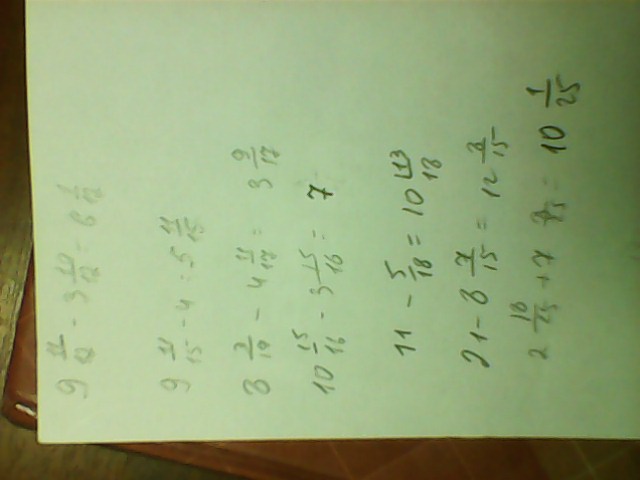 9 11/12 - 3 10/12 = 6 1/12
9 11/15 - 4 = 5 11/15
8 3/17 - 4 11/17 = 3 9/17
10 15/16 - 3 15/16 = 7
11 - 5/18 = 10 13/18
21 - 8 7/15 = 12 8/15
2 18/25 + 7 = 10 1/25